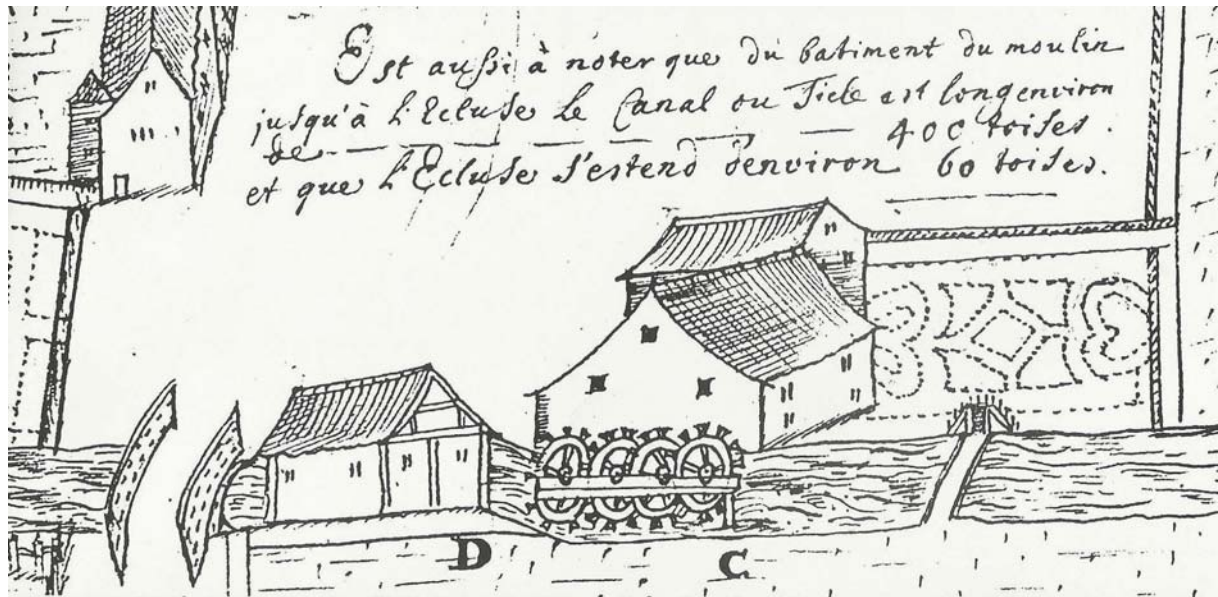 Est aussi à noter que du batiment du moulin
jusqu'à l'Ecluse le Canal ou est long environ
de 400 toises.
et que l'Ecluse s'estend d'environ 60 toises.
D C